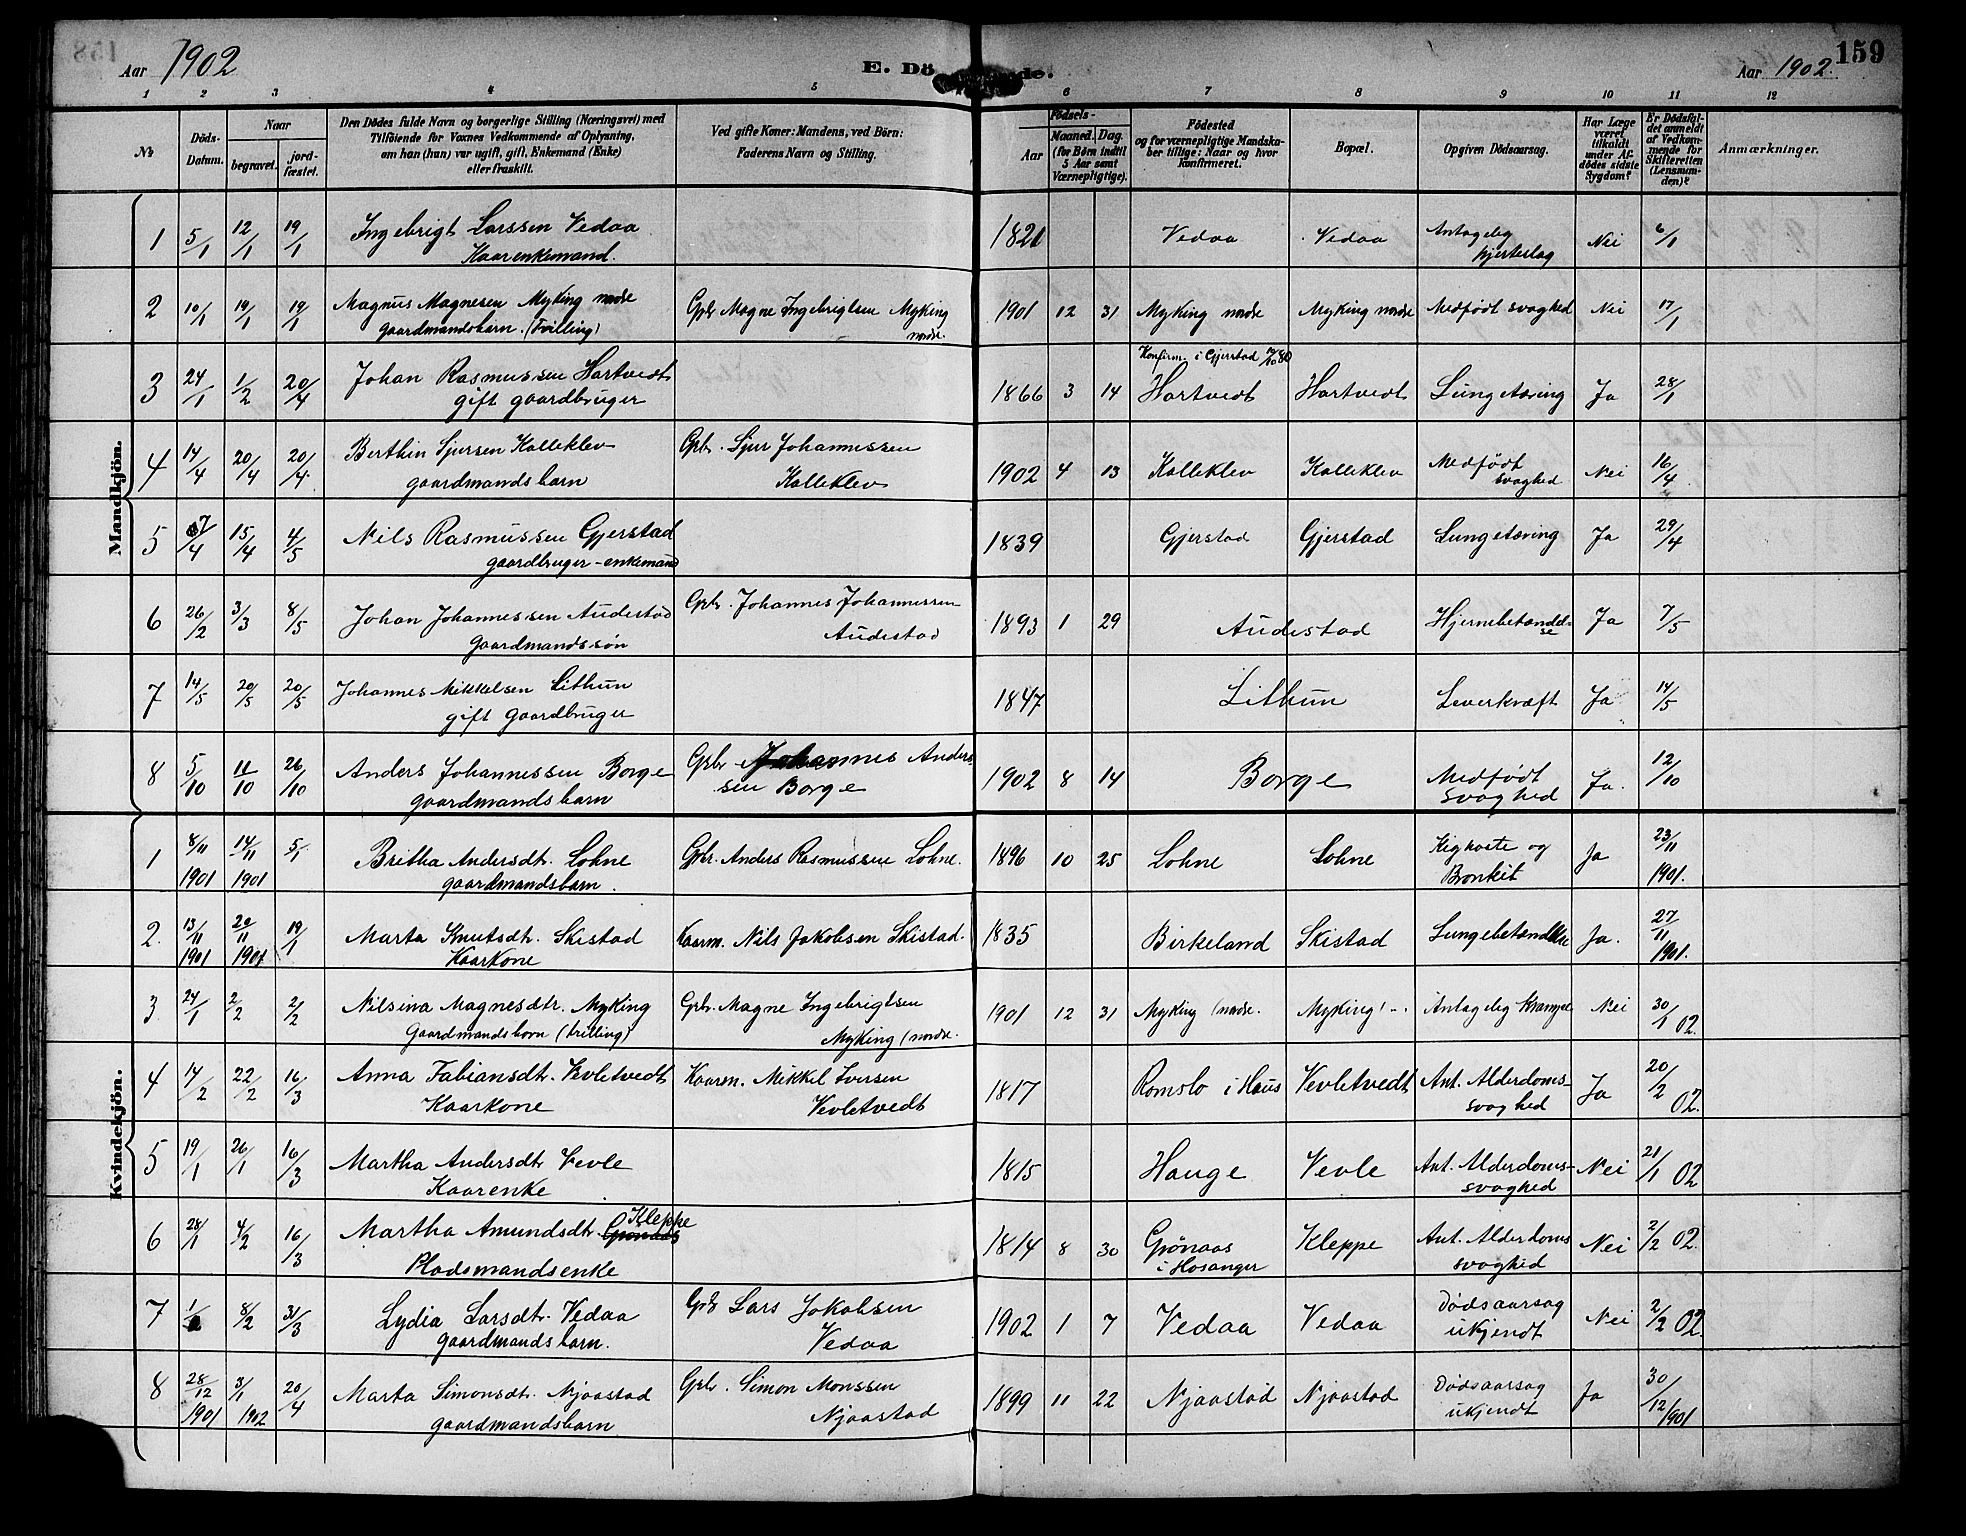 Aar 1902 E. Dö de. Aar 1902. 159
1 2 3 4 5 6 7 8 9 10 11 12
№ Döds-Datum. Naar begravet. jord-fæstet. Den Dödes fulde Navn og borgerlige Stilling (Næringsvei) med Tilföiende for Voxnes Vedkommende af Oplysning, om han (hun) var ugift, gift, Enkemand (Enke) eller fraskilt. Ved gifte Koner: Mandens, ved Börn: Faderens Navn og Stilling. Födsels- Aar Maaned. Dag. (for Börn indtil 5 Aar samt Værnepligtige). Födested og for værnepligtige Mandskaber tillige: Naar og hvor konfirmeret. Bopæl. Opgiven Dödsaarsag. Har Læge været tilkaldt under Afdödes sidste Sygdom? Er Dödsfaldet anmeldt af Vedkommende for Skifteretten (Lensmanden)? Anmærkninger.
Mandkjön.
1 5/1 12/1 19/1 Ingebrigt Larssen Vedaa Kaarenkemand. 1821 Vedaa Vedaa Antagelig hjerteslag Nei 6/1
2 10/1 19/1 19/1 Magnus Magnesen Myking nordre gaardmandsbarn. (Tvilling) Gbr Magne Ingebrigtsen Myking nordre. 1901 12 31 Myking nordre Myking nordre Medfödt svaghed Nei 17/1
3 24/1 1/2 20/4 Johan Rasmussen Hartvedt gift gaardbruger 1866 3 14 Konfirm. i Gjerstad Hartvedt Hartvedt Lungetæring Ja 28/1
4 14/4 20/4 20/4 Berthin Sjursen Kalleklev gaardmandsbarn Gbr. Sjur Johannessen Kalleklev 1902 4 13 Kalleklev Kalleklev Medfödt svaghed Nei 16/4
5 7/4 15/4 4/5 Nils Rasmussen Gjerstad gaardbruger - enkemand 1839 Gjerstad Gjerstad Lungetæring Ja 29/4
6 26/2 3/3 8/5 Johan Johannessen Audestad Gaardmandssön Gbr. Johannes Johannessen Audestad 1893 1 29 Audestad Hjernebetændelse Ja 7/5
7 14/5 20/5 20/5 Johannes Mikkelsen Lithun gift Gaardbruger 1847 Lithun Leverkræft Ja 14/5
8 5/10 11/10 26/10 Anders Johannessen Borge gaardmandsbarn Gbr Johannes Anderssen Borge 1902 8 14 Borge Medfödt svaghed Ja. 12/10
Kvindekjön.
1 8/11 1901 14/11 1901 5/1 Britha Andersdt. Lohne gaardmandsbarn. Gbr. Anders Rasmussen Lohne. 1896 10 25 Lohne Lohne Kighoste og Bronkit Ja 23/11 1901.
2. 13/11 1901 20/11 1901 19/1 Marta Knutsdt. Skistad Kaarkone Kaarm. Nils Jakobsen Skistad. 1835 Birkeland Skistad Lungebetændelse Ja. 27/11 1901.
3 24/1 2/2 2/2 Nilsina Magnesdtr. Myking Gaardmandsbarn (tvilling) Gbr. Magne Ingebrigtsen Myking (nordre. 1901 12 31 Myking (nordre. Myking (-. Antagelig Krampe Nei 30/1 02.
4 14/2 22/2 16/3 Anna Fabiansdt. Vevletvedt Kaarkone Kaarm. Mikkel Iversen Vevletvedt 1817 Romslo i Haus Vevletvedt Ant. Alderdomssvaghed Ja 20/2 02.
5 19/1 26/1 16/3 Martha Andersdt. Vevle Kaarenke 1815 Hauge Vevle Ant. Alderdomssvaghed Nei 21/1 02
6 28/1 4/2 16/3 Martha Amundsdt. Grönaas Kleppe Pladsmandsenke 1814 8 30 Grönaas i Hosanger Kleppe Ant. Alderdomssvaghed Nei 2/2 02.
7 1/2 8/2 31/3 Lydia Larsdt. Vedaa gaardmandsbarn. Gbr Lars Jokobsen Vedaa 1902 1 7 Vedaa Vedaa Dödsaarsag ukjendt Nei 2/2 02
8 28/12 1901 3/1 1902 20/4 Marta Simonsdt. Njaastad gaardmandsbarn Gbr. Simon Monssen Njaastad 1899 11 22 Njaastad Njaastad Dödsaarsag ukjendt Ja 30/12 1901